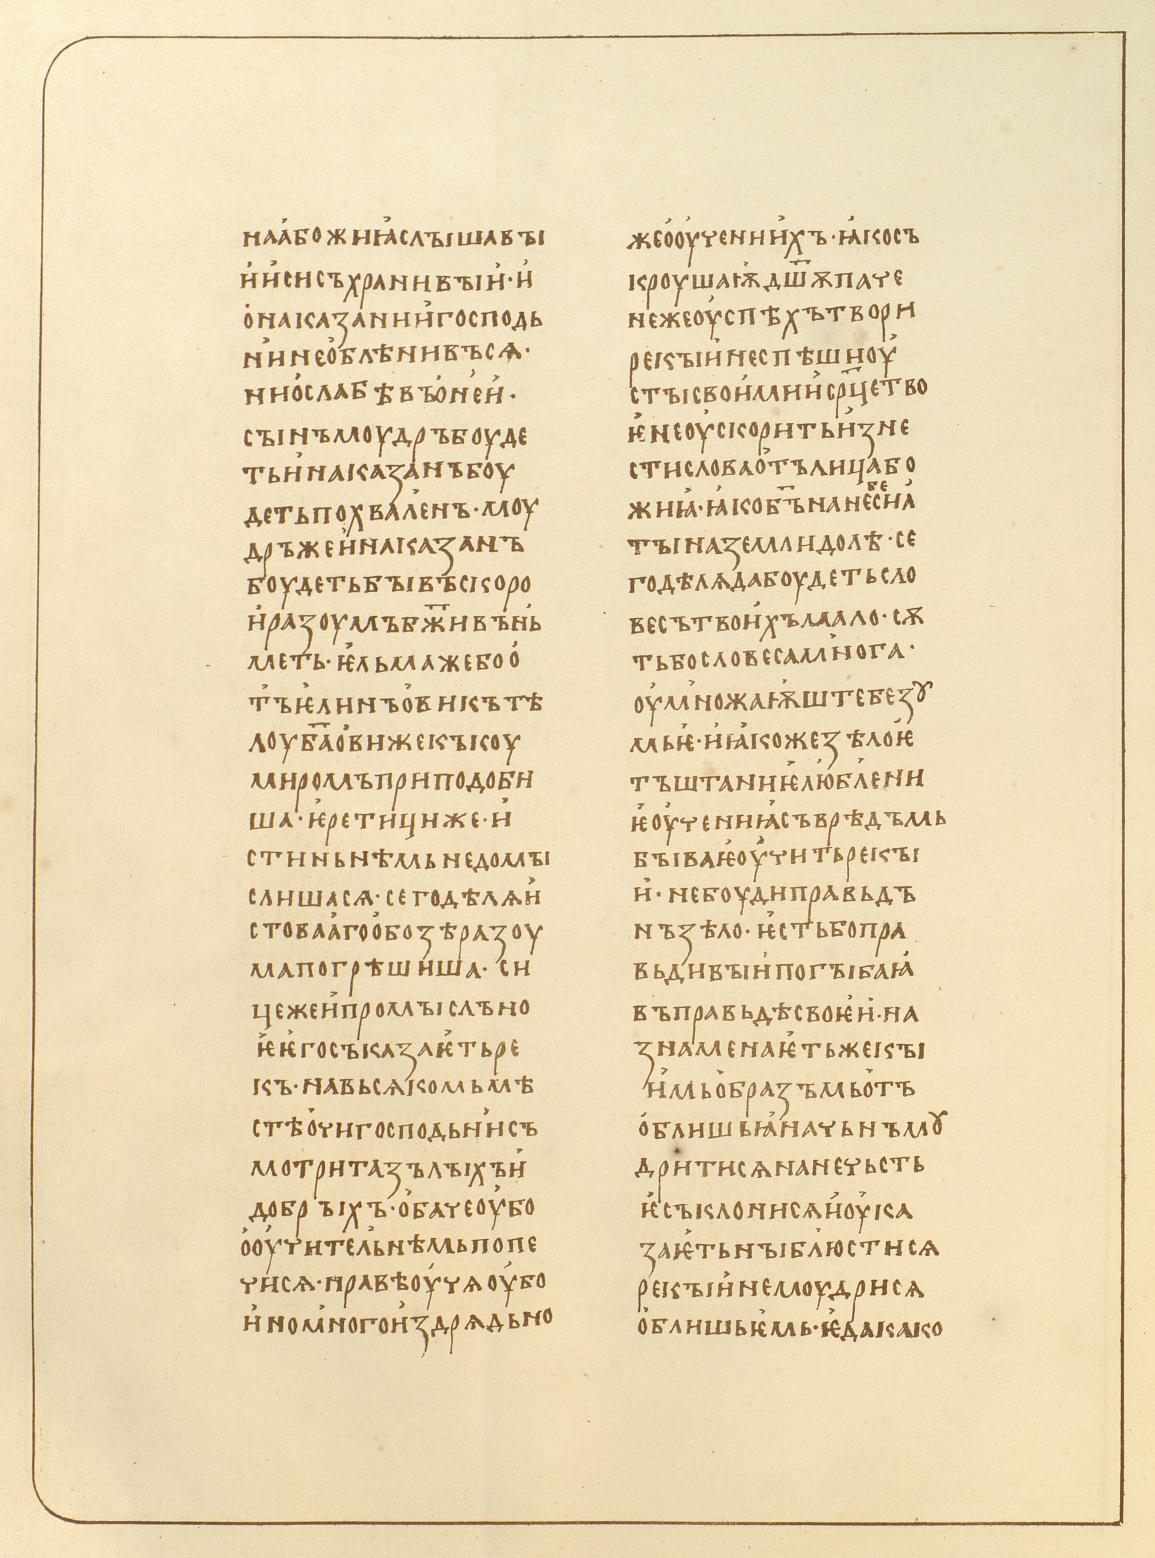 наа҆божиꙗ҆слꙑшавꙑ
и҆и҆сисъхранивꙑи҆·и҆
о҆наказании҆господь
ни҆нео҆блѣнивъсѧ·
нио҆слабѣвъо҆неи҆·
сꙑнъмоудръбоуде
тьи҆наказанъбоу
детьпохвале҆нъ·моу
дръжеи҆наказанъ
боудетьбꙑвъскоро
и҆разоумъбж҃ивън҆ь
меть·ѥ҆льмажебоо҆
т҆ъѥ҆линъо҆викътѣ
лоуба҃о҆вижекъкоу
миромъприподоби
ша·ѥ҆ретициже·и҆
стиньнѣмьнедомꙑ
слишасѧ·сегодѣлѧи҆
стоваа҆гоо҆бозѣразоу
мапогрѣшиша·си
цежеи҆промꙑслъно
ѥ҆ѥ҆госъказаѥ҆тьре
къ·навьсѧкомьмѣ
стѣо҆чигосподьни҆съ
мотритазълꙑхъи҆
добрꙑхъ·о҆бачеоу҆бо
о҆оу҆чительнѣмьпопе
чисѧ·правѣоу҆чѧоу҆бо
и҆ном҆ногои҆здрѧдьно
жео҆оу҆чении҆хъ·ꙗ҆косъ
кроушаѭ҆дш҃ѫпаче
нежеоу҆спѣхътвори
рекꙑи҆неспѣшноу҆
стꙑсвои҆мии҆ср҃цетво
ѥ҆неоу҆скоритьи҆зне
стисловао҆тълицабо
жиꙗ҆·ꙗ҆коб҃ънанебесиа҆
тꙑназемлидолѣ·се
годѣлѧдабоудетьсло
весътвои҆хъмало·сѫ
тьбословесам҆нога·
оу҆м҆ножаѭ҆штебезꙋ
мьѥ·и҆ꙗ҆кожезѣлоѥ҆
тъштаниѥ҆лю҆бл҆ени
ѥ҆оу҆чениꙗ҆съврѣдъмь
бꙑваѥ҆оу҆читьрекꙑ
и҆·небоудиправьдъ
нъзѣло·ѥ҆стьбопра
вьдивꙑи҆погꙑбаꙗ҆
въправьдѣсвоѥ҆и҆·на
знаменаѥ҆тьжекꙑ
и҆мьо҆бразъмьо҆тъ
о҆блишьꙗ҆начьнъмꙋ
дритисѧнанечьсть
ѥ҆съклонисѧи҆оу҆ка
заѥ҆тьнꙑбл҆юстисѧ
рекꙑи҆немоудрисѧ
о҆блишьѥ҆мь·ѥ҆дакако